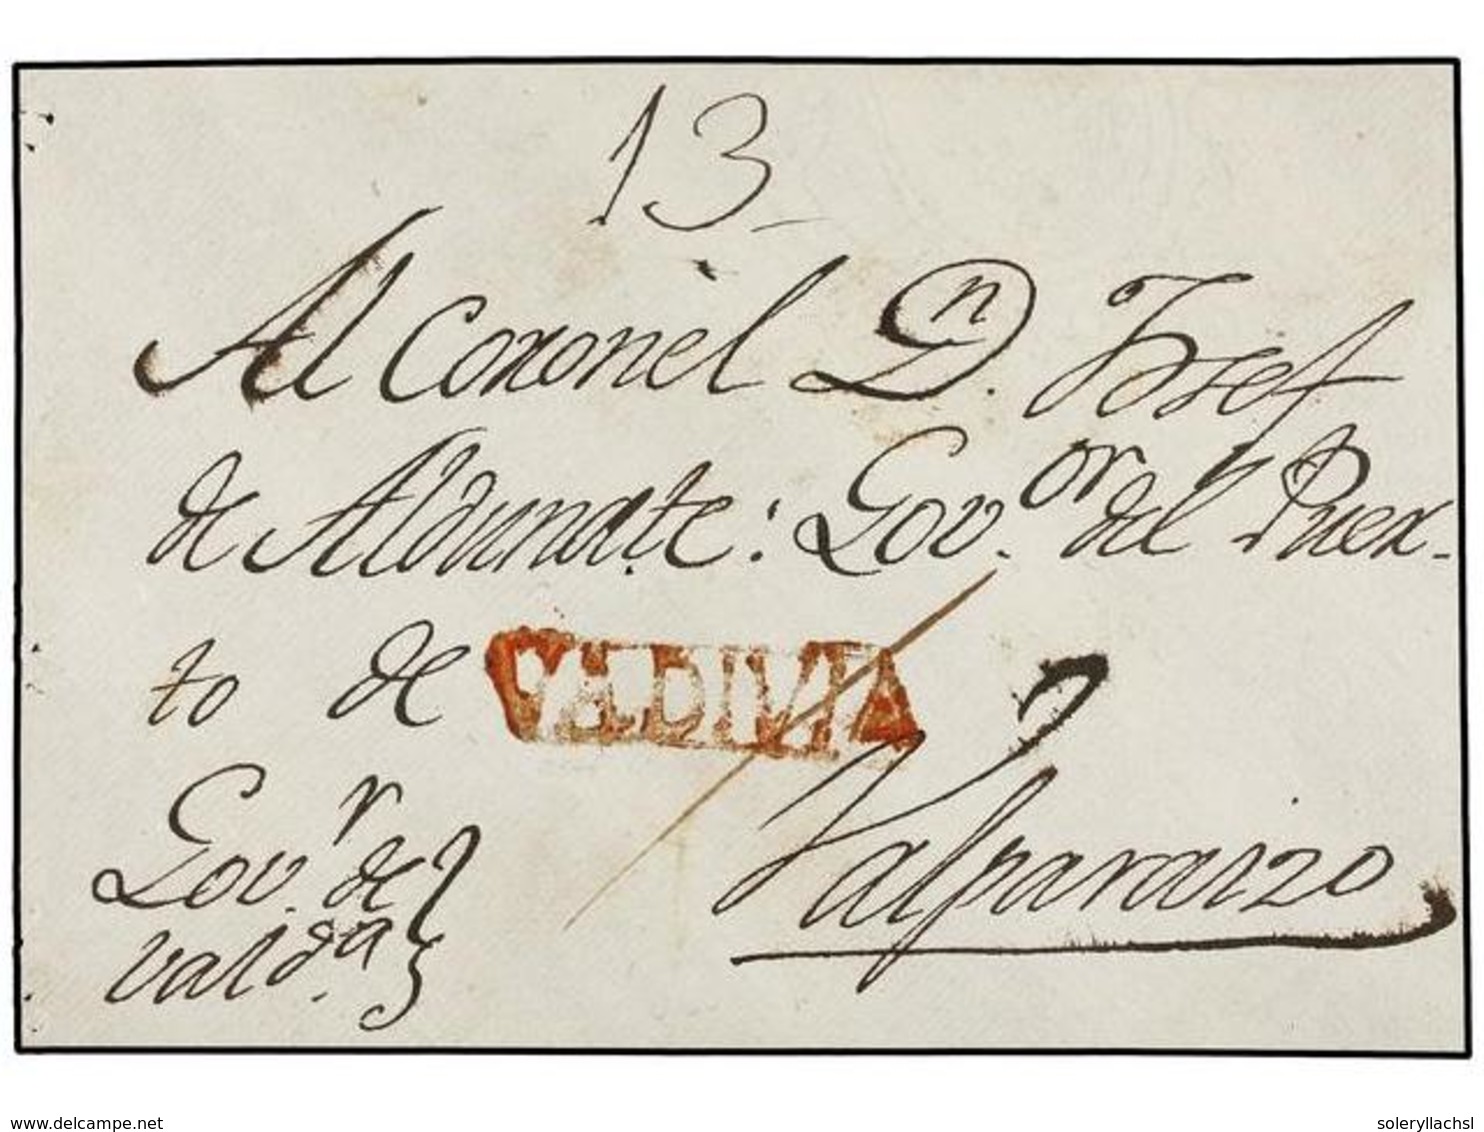 13
Al Coronel Dn. Josef
de Aldunate: Govor. del Puer-
to de
VALDIVIA
Valparaizo
Govr. de
Valda.
www.delcampe.net
soleryllachsl